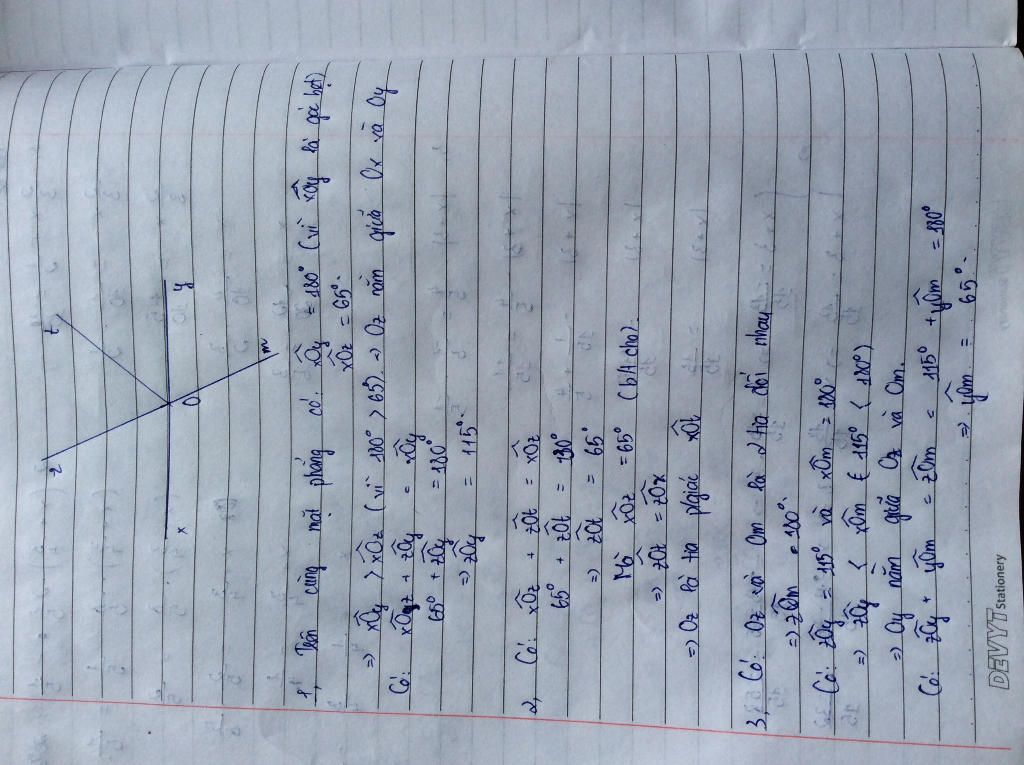 z
t
x
O
y
m
1, Trên cùng mặt phẳng có: xÔy = 180° (vì xÔy là góc bẹt)
xÔz = 65°.
=> xÔy > xÔz (vì 180° > 65°) => Oz nằm giữa Ox và Oy
Có: xÔz + zÔy = xÔy
65° + zÔy = 180°
=> zÔy = 115°.
2, Có: xÔz + zÔt = xÔz
65° + zÔt = 130°
=> zÔt = 65°
Mà xÔz = 65° (bài cho).
=> zÔt = zÔx
=> Oz là tia p/giác xÔt
3, Có: Oz và Om là 2 tia đối nhau
=> zÔm = 180°.
Có: zÔy = 115° và xÔm = 180°
=> zÔy < xÔm ( 115° < 180°)
=> Oy nằm giữa Oz và Om.
Có: zÔy + yÔm = zÔm = 115° + yÔm = 180°
=> yÔm = 65°.
DEVYT Stationery